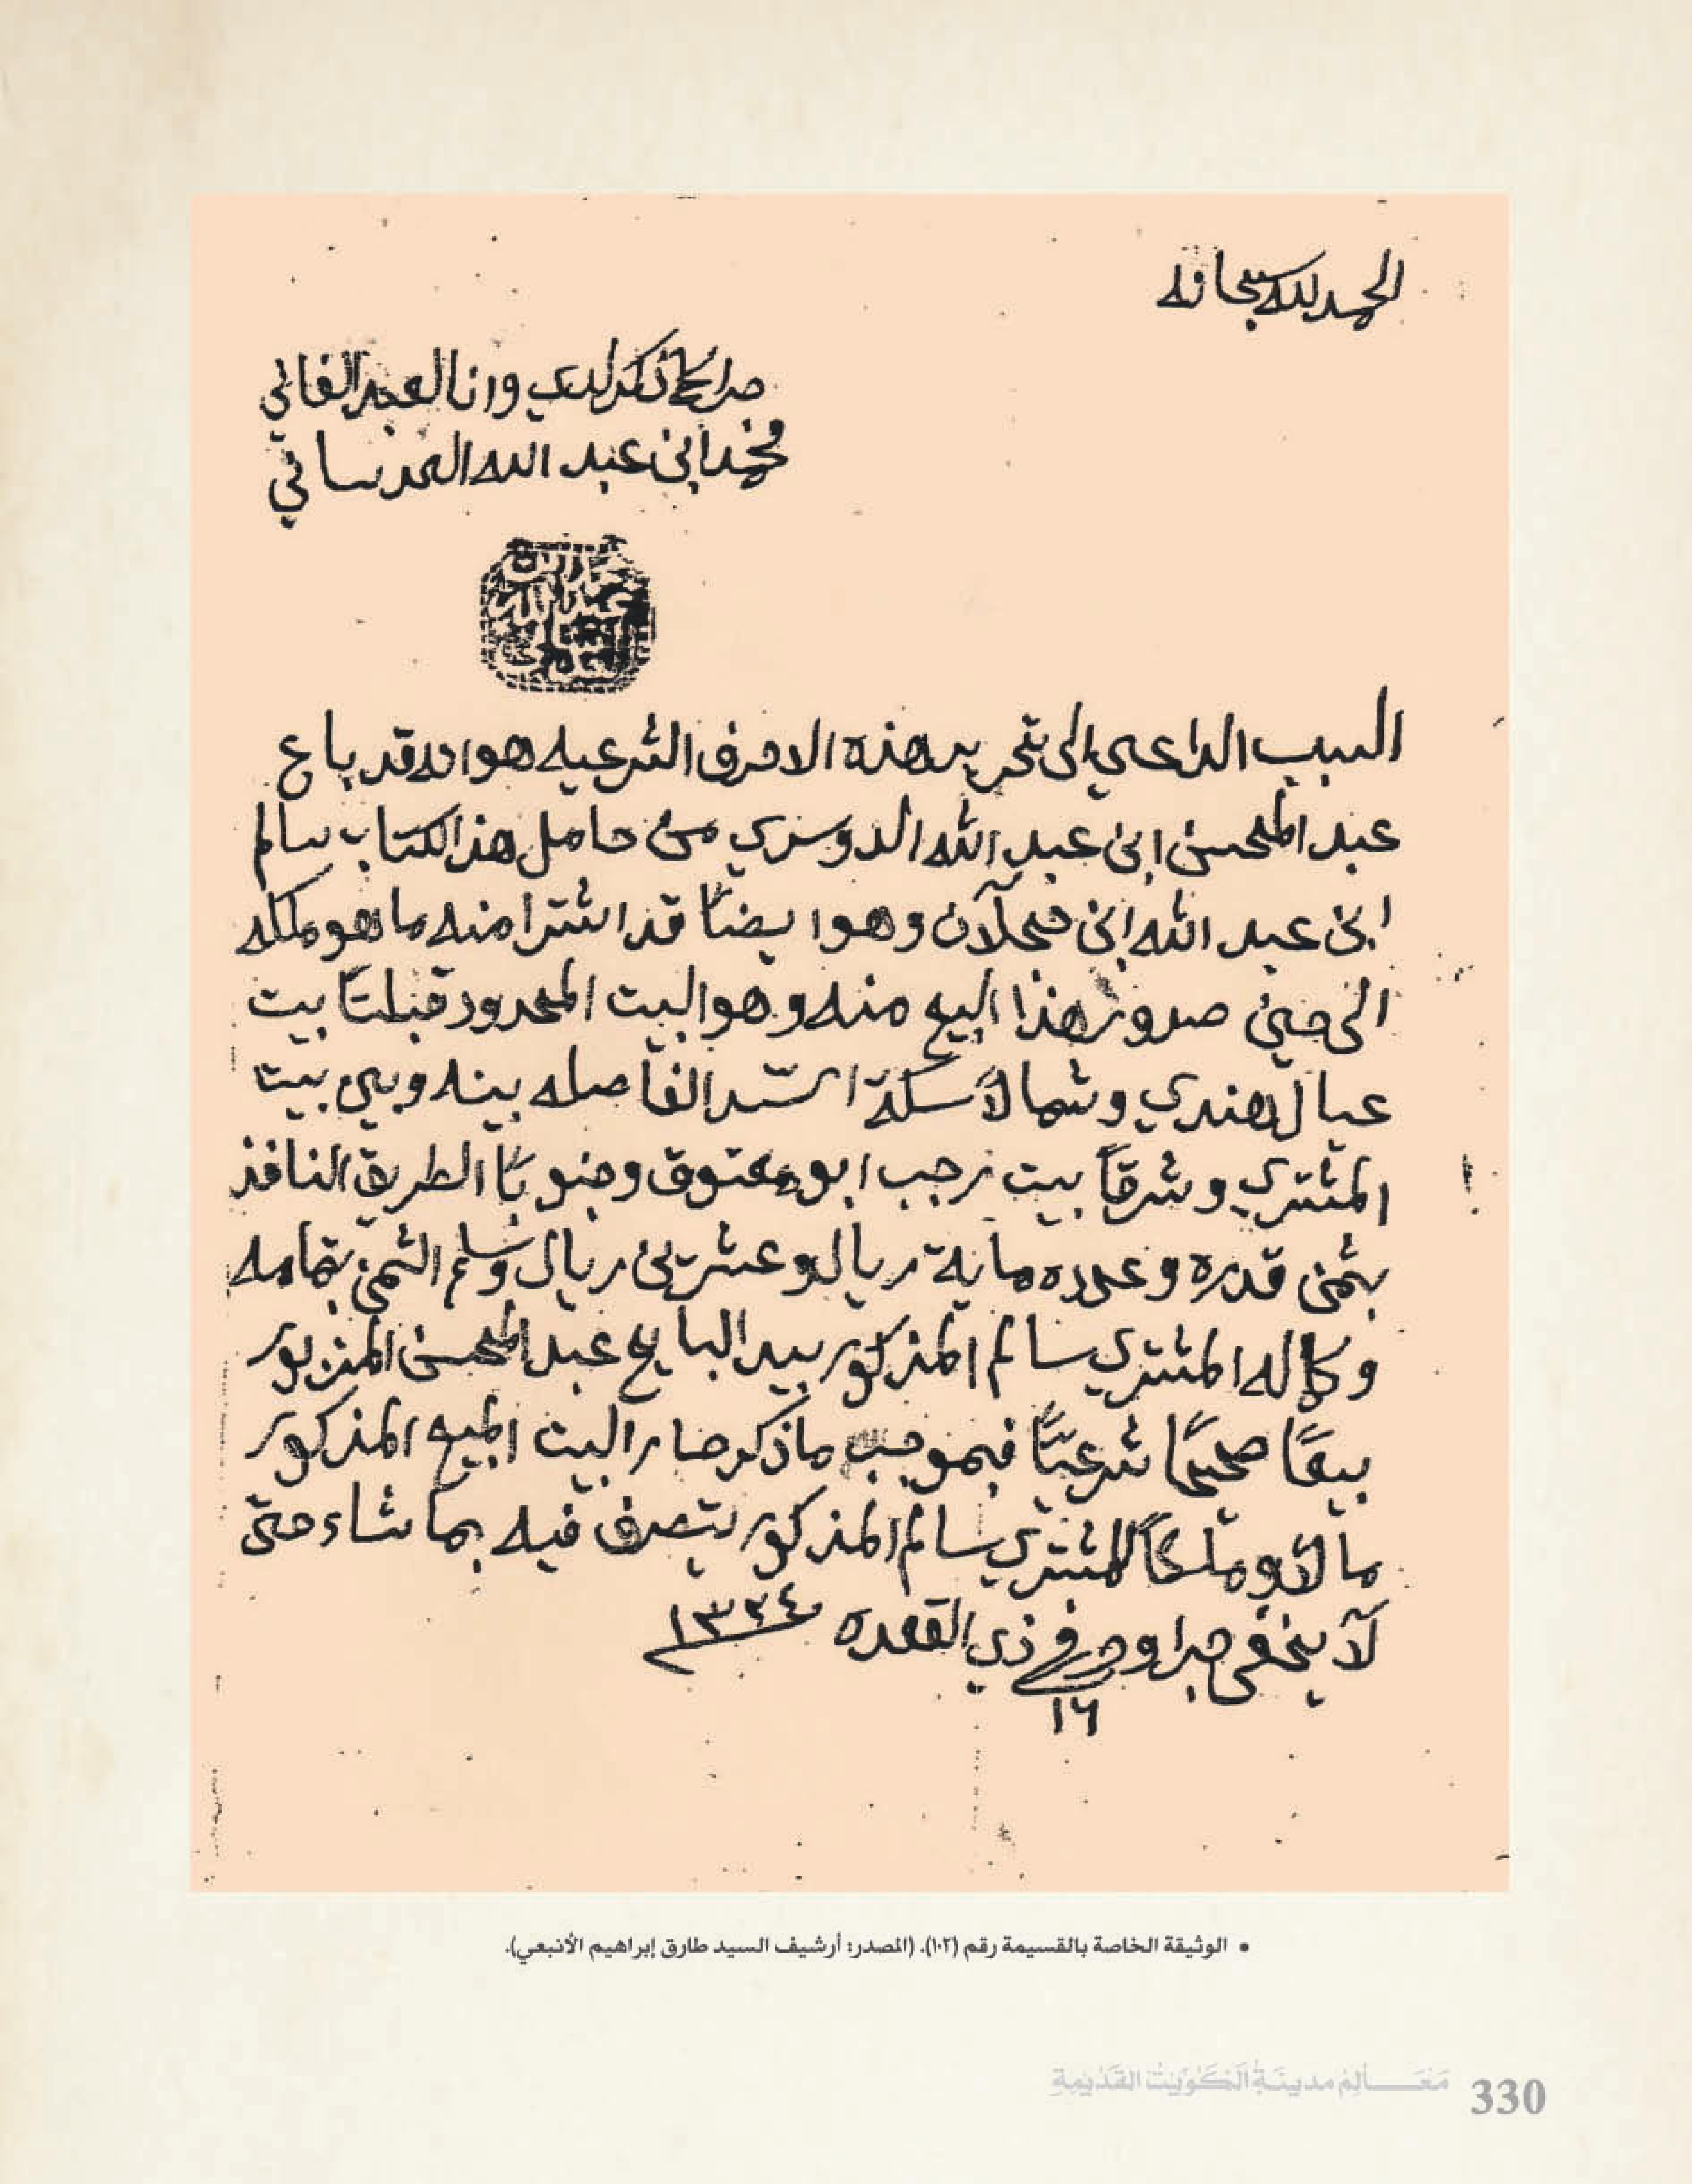 الحمد لله سبحانه
صدر كما ذكر لدي وانا العبد الفاني
محمد ابن عبد الله العدساني
السبب الداعي الى تحرير هذه الاحرف الشرعيه هو انه قد باع
عبد المحسن ابن عبد الله الدوسري من حامل هذ الكتاب سالم
ابن عبد الله ابن فحلآن وهو ايضًا قد اشترا منه ما هو ملكه
الى حين صدور هذا البيع منه وهو البيت المحدود قبلتًا بيت
عيال هندي وشمالًا سكة السّد الفاصله بينه وبين بيت
المشتري وشرقًا بيت رجب ابو معتوق وجنوبًا الطريق النافذ
بثمن قدره وعدده ماية ريال وعشرين ريال وسلم الثمن بتمامه
وكماله المشتري سالم المذكور بيد البايع عبد المحسن المزبور
بيعًا صحيحًا شرعيًّا فبموجب ما ذكر صار البيت المبيع المذكور
مالًا وملكًا للمشتري سالم المذكور يتصرف فيه بما شاء حتى
لآ يخفى جرا وحرر في ذي القعده ١٣٣٤
١٦
• الوثيقة الخاصة بالقسيمة رقم (١٠٢). (المصدر: أرشيف السيد طارق إبراهيم الأنبعي).
مَعَالِمُ مدينَةِ الكُوَيتْ القَدْيمِةِ 330